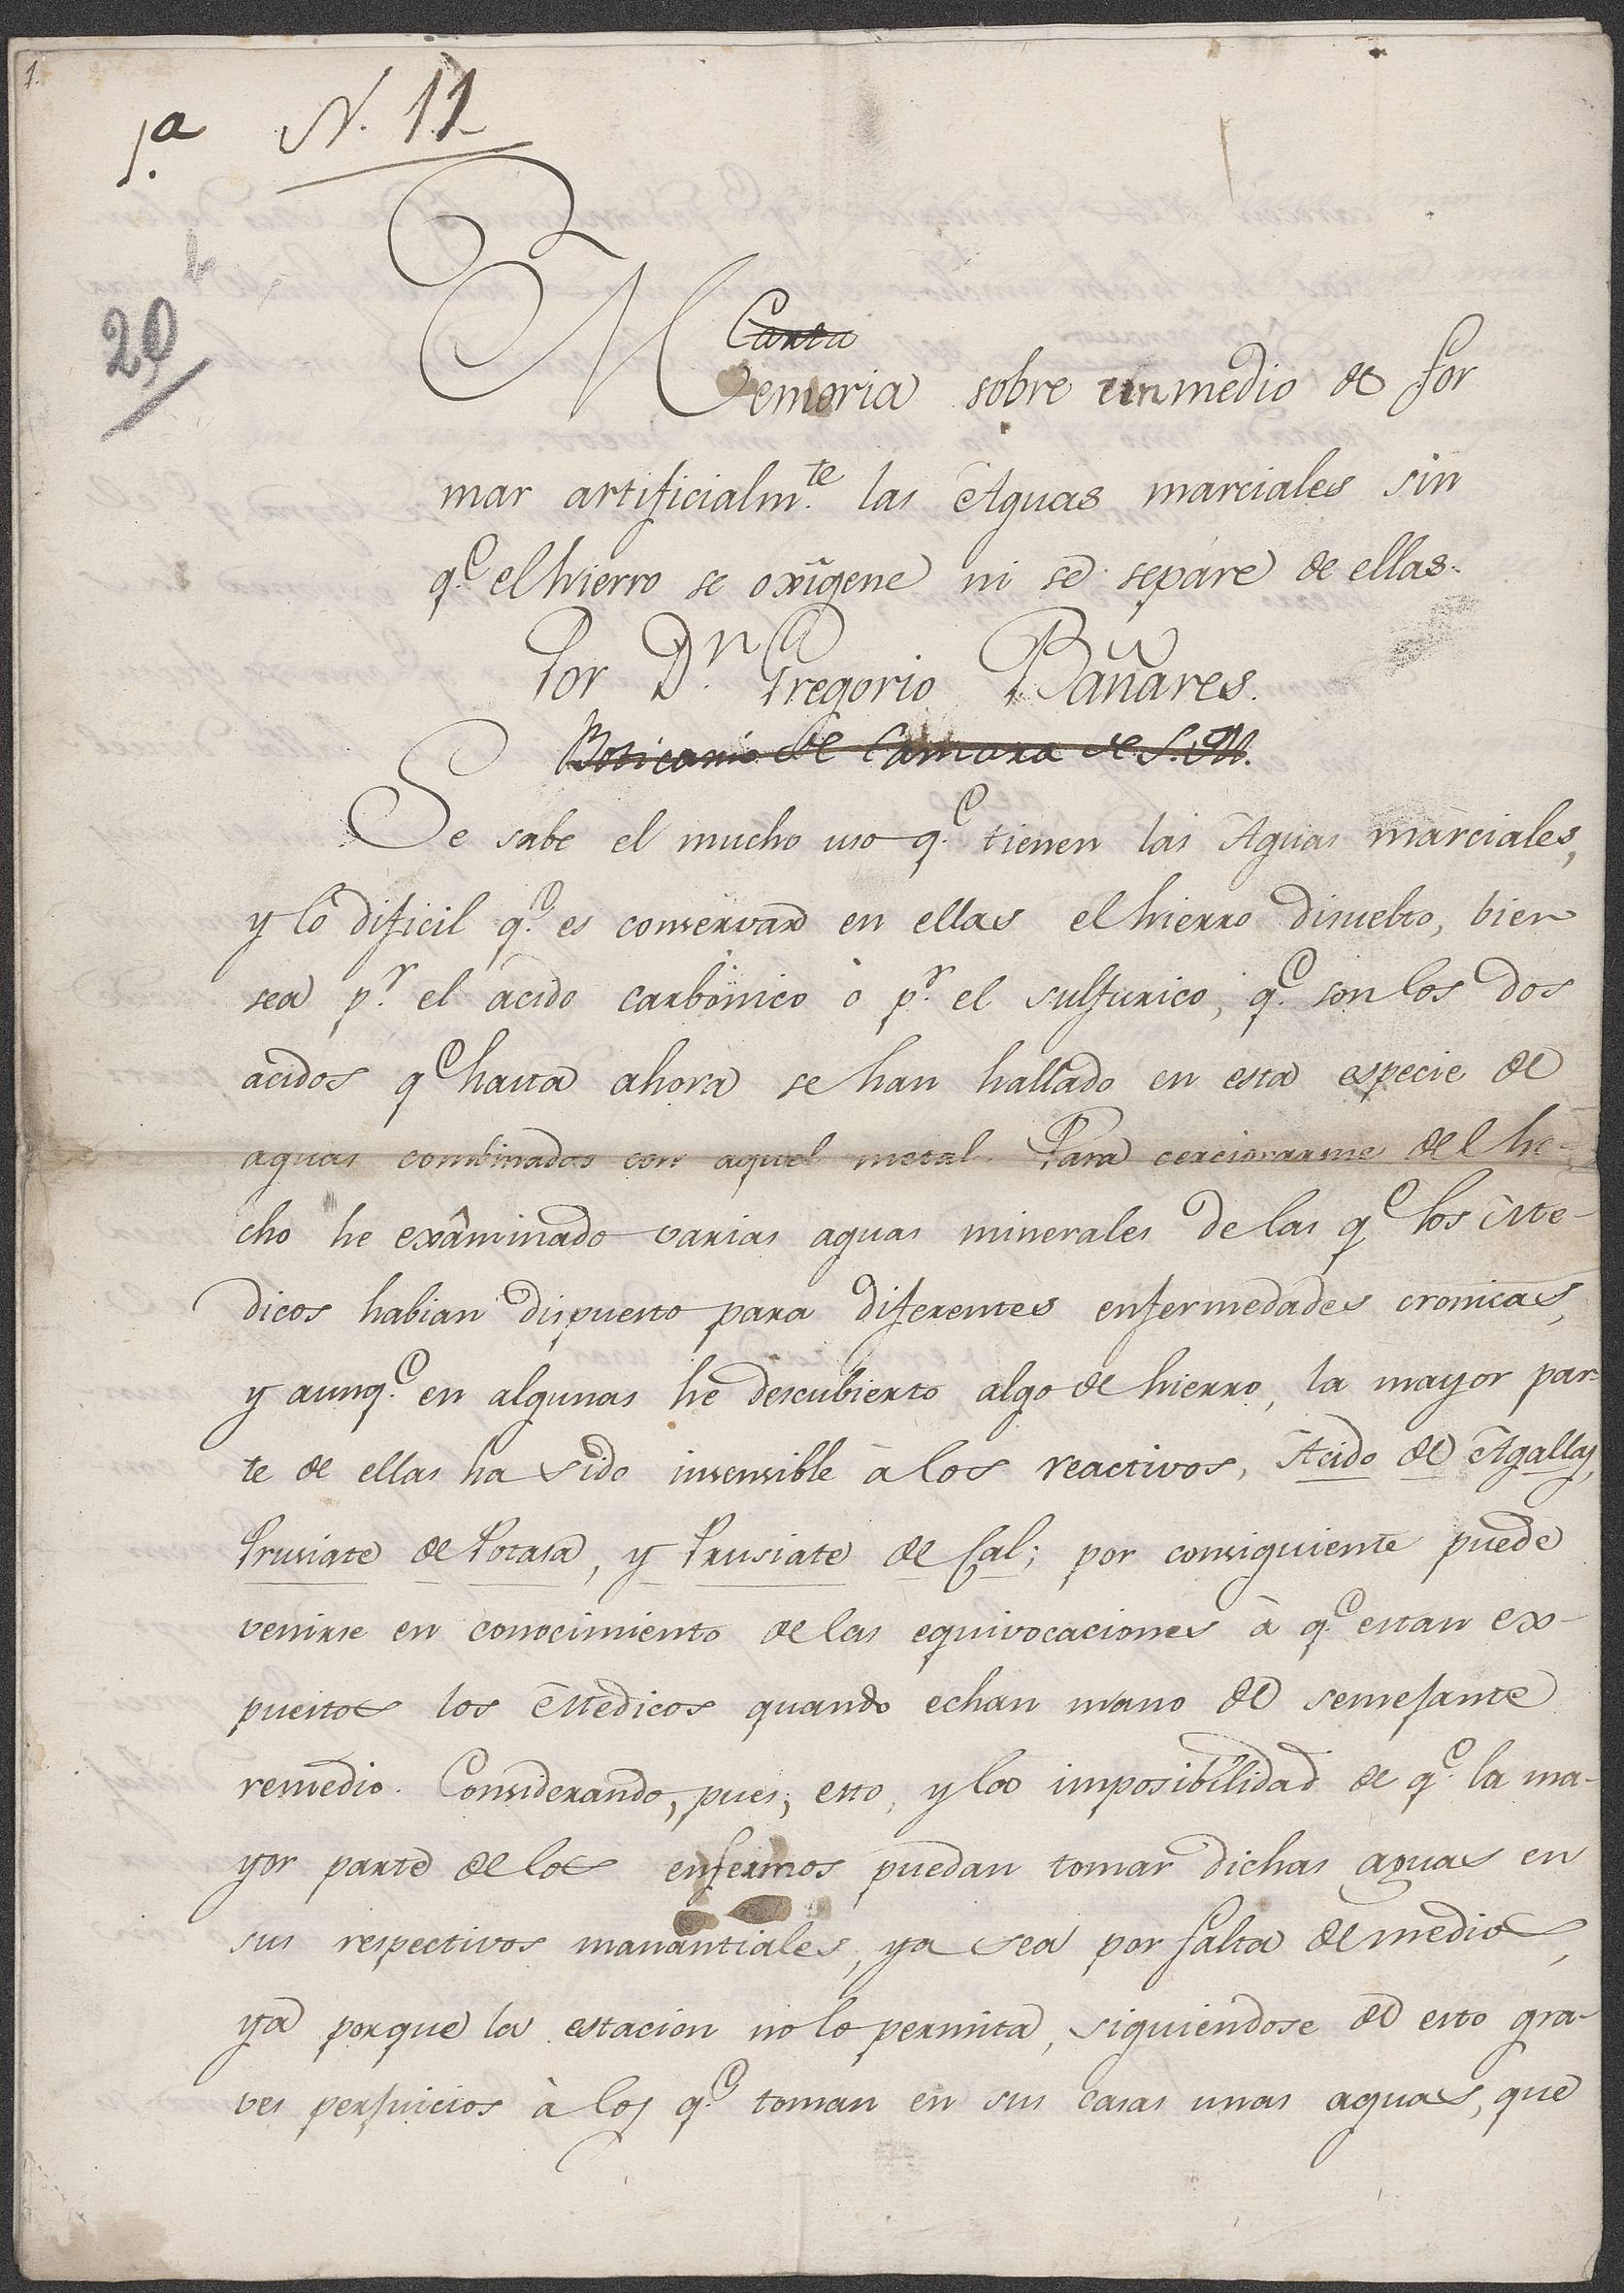 1.
1.a N. 11
20
Carta
Memoria sobre un medio de for
mar artificialm.te las Aguas marciales sin
q.e el hierro se oxîgene ni se separe de ellas.
Por D.n Gregorio Bañares.
Boticario de Camara de S.M.
Se sabe el mucho uso q.e tienen las Aguas marciales,
y lo dificil q.e es conservar en ellas el hierro disuelto, bien
sea p.r el acido carbónico ò p.r el sulfurico, q.e son los dos
acidos q.e hasta ahora se han hallado en esta especie de
aguas combinados con aquel metal. Para cerciorarme del he-
cho he exâminado varias aguas minerales de las q.e los Me-
dicos habian dispuesto para diferentes enfermedades cronicas,
y aunq.e en algunas he descubierto algo de hierro, la mayor par-
te de ellas ha sido insensible à los reactivos, Acido de Agallas,
Prusiate de Potasa, y Prusiate de Cal; por consiguiente puede
venirse en conocimiento de las equivocaciones à q.e estan ex-
puestos los Medicos quando echan mano de semejante
remedio. Considerando, pues, esto, y la imposibilidad de q.e la ma-
yor parte de los enfermos puedan tomar dichas aguas en
sus respectivos manantiales, ya sea por falta de medios,
ya porque la estacion no lo permita, siguiendose de esto gra-
ves perjuicios à los q.e toman en sus casas unas aguas, que